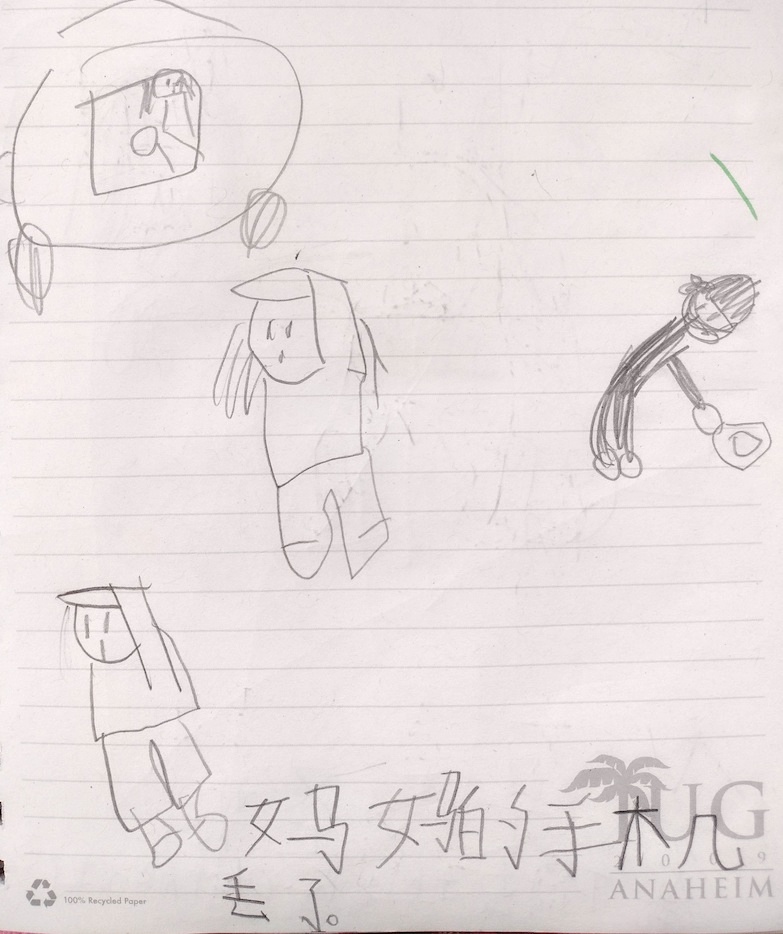 妈妈的手机
丢了。
IUG
2009
ANAHEIM
100% Recycled Paper